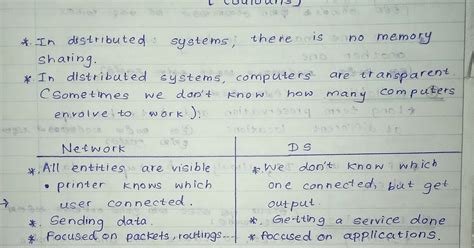 * In distributed systems, there is no memory
sharing.
* In distributed systems, computers are transparent
(Sometimes we don't know how many computers
envolve to work!)
Network
* All entities are visible
• printer knows which
→ user connected.
* Sending data.
* Focused on packets, routings...
DS
* We don't know which
one connected, but get
output.
* Getting a service done
* focused on applications.